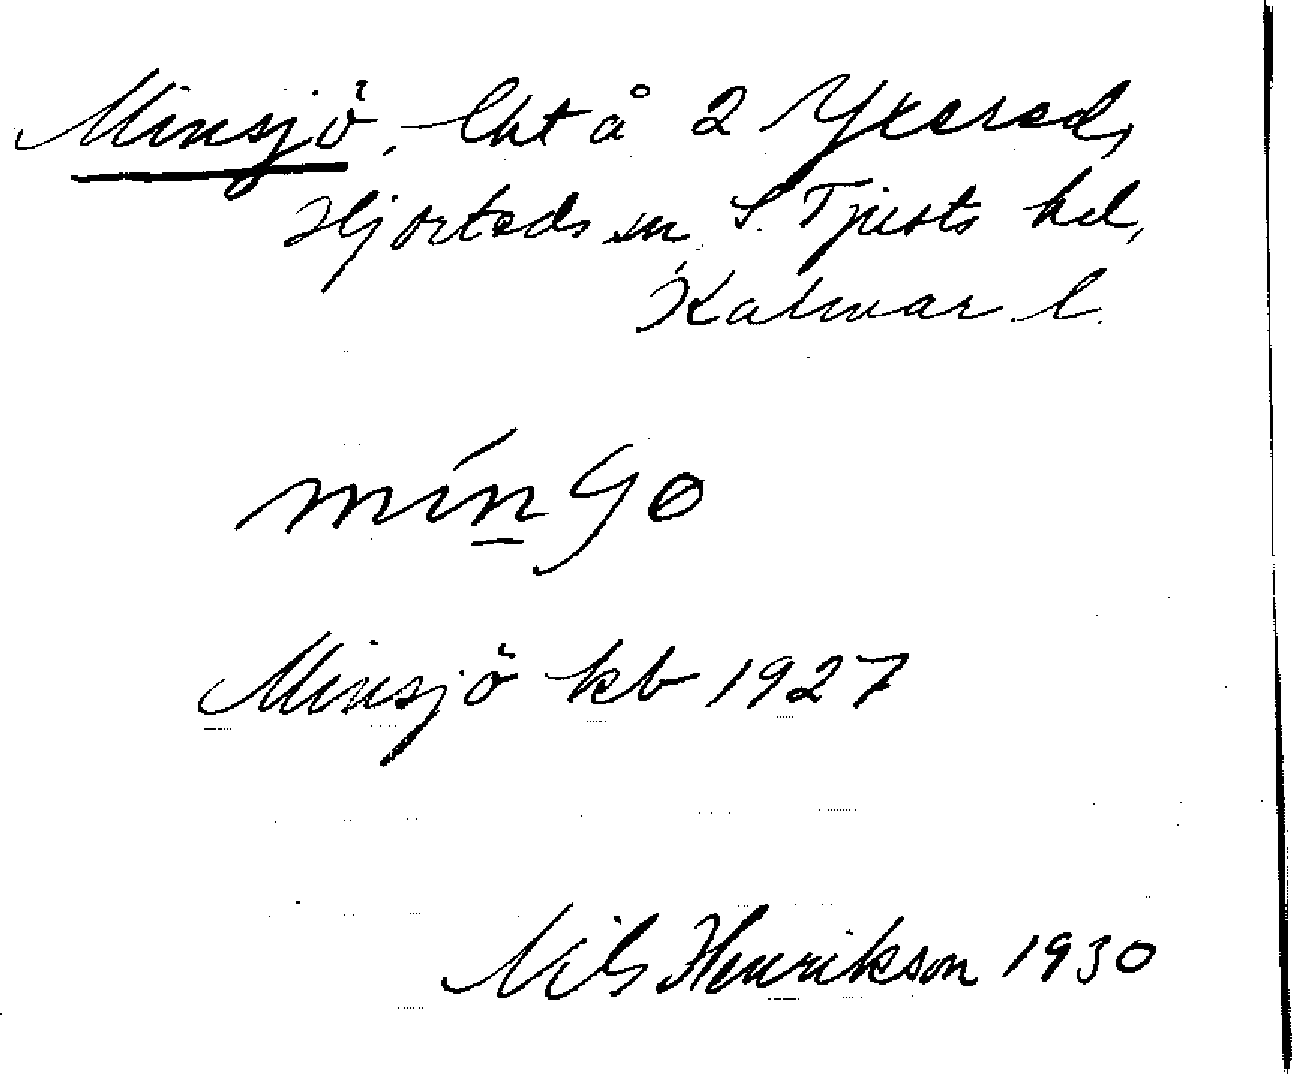 Minsjö, lht å 2 Yxered,
Hjorteds sn, S. Tjusts hd,
Kalmar l.
mín̲ɧo
Minsjö kb 1927
Nils Henrikson 1930